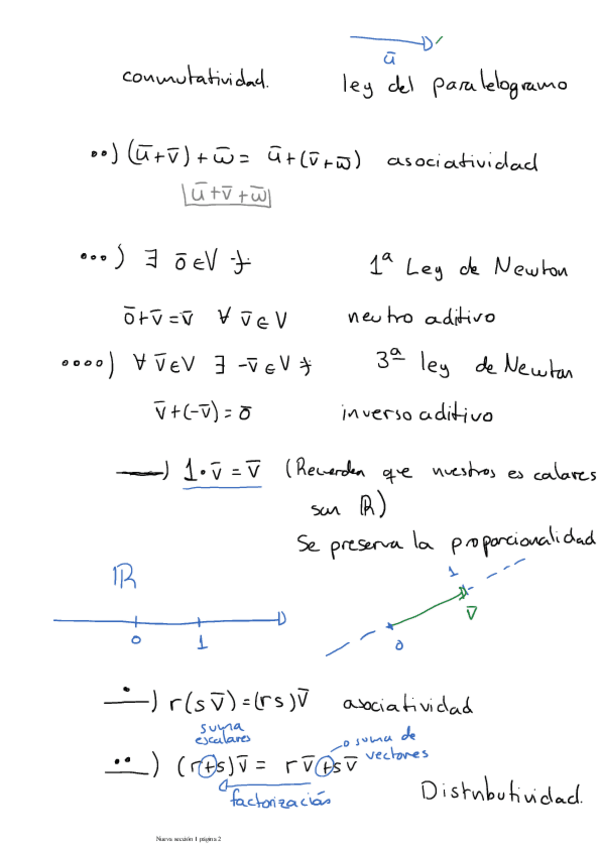 ū
conmutatividad. ley del paralelogramo
••) (ū+v̄)+w̄ = ū+(v̄+w̄) asociatividad
ū+v̄+w̄
•••) ∃ ō∈V ∋ 1ª Ley de Newton
ō+v̄=v̄ ∀ v̄∈V neutro aditivo
••••) ∀ v̄∈V ∃ -v̄∈V ∋ 3ª ley de Newton
v̄+(-v̄)=ō inverso aditivo
—) 1·v̄=v̄ (Recuerden que nuestros escalares
son ℝ)
Se preserva la proporcionalidad
ℝ 1
v̄
0 1 0
•—) r(sv̄)=(rs)v̄ asociatividad
suma
escalares
suma de
vectores
••—) (r+s)v̄ = rv̄+sv̄
factorización
Distributividad.
Nueva sección 1 página 2